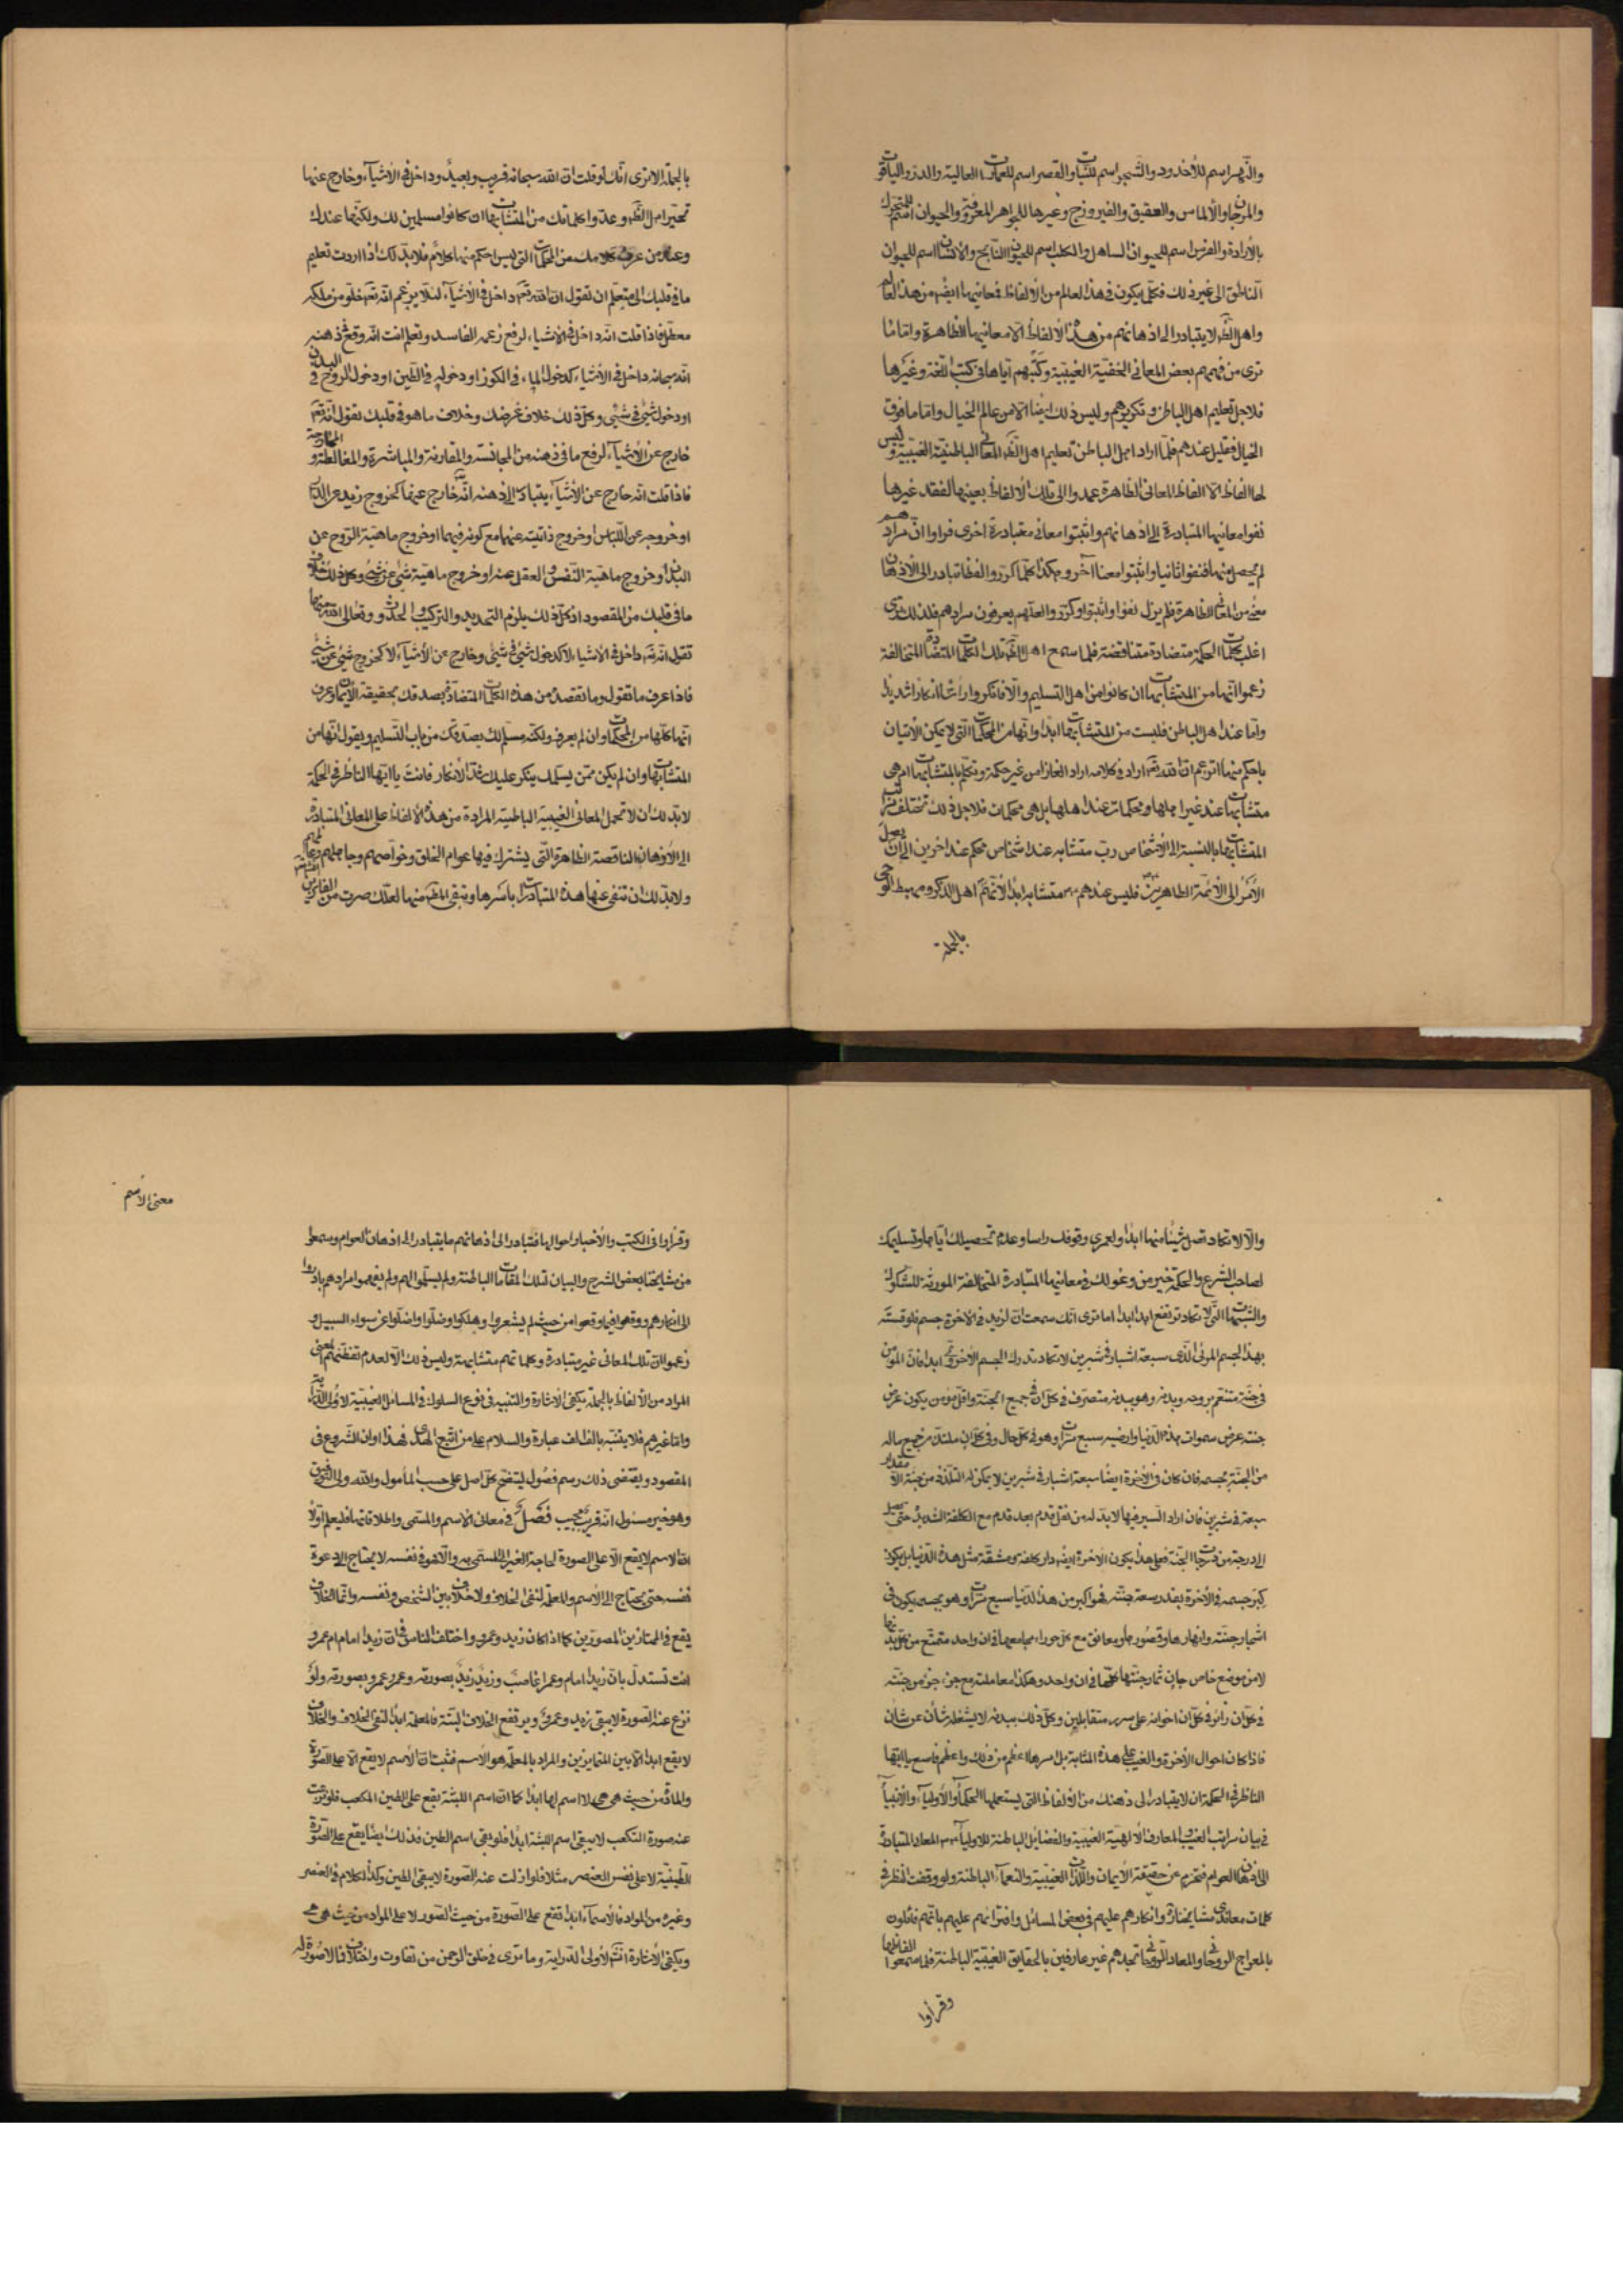 والنهر اسم للأخدود والشجر اسم للنبات والقصر اسم للعمارات العالية والدر والياقوت
والمرجان والألماس والعقيق والفيروزج وغيرها للجواهر المعروفة والحيوان اسم للمتحرك
بالأرادة والفرس اسم للحيوان الساهل والكلب اسم للحيوان النابح والأنسان اسم للحيوان
الناطق الى غير ذلك فكلما يكون في هذا العالم من الألفاظ فمعانيها ايضا من هذا العالم
واهل الظاهر لا يتبادر الى اذهانهم من هذه الألفاظ الا معانيها الظاهرة واما ما
ترى من فهمهم بعض المعاني الخفية الغيبية وكتبهم اياها في كتب اللغة وغيرها
فلاجل تعليم اهل الباطن وتكريرهم وليس ذلك ايضا الا من عالم الخيال واما ما فوق
الخيال فقليل عندهم فلما اراد اهل الباطن تعليم اهل الظاهر المعاني الباطنية الغيبية وليس
لها الفاظ الا الفاظ المعاني الظاهرة عمدوا الى تلك الألفاظ بعينها لفقد غيرها
نفوا معانيها المتبادرة الى اذهانهم واثبتوا معاني متبادرة اخرى فراوا ان مرادهم
لم يحصل منها فنفوا ثانيا واثبتوا معنا آخر وهكذا كلما كرروا لفظا تبادر الى الأذهان
معنى من المعاني الظاهرة فلم يزل نفوا واثبتوا وكرروا لعلهم يعرفون مرادهم فلذلك ترى
اغلب كلمات الحكمة متضادة متناقضة فلما سمع اهل الظاهر تلك الكلمات المتضادة المتخالفة
زعموا انها من المتشابهات ان كانوا من اهل التسليم والا فانكروا رأسا انكارا شديدا
واما عند اهل الباطن فليست من المتشابهات ابدا وانها من المحكمات التي لا يمكن الأتيان
باحكم منها اتزعم ان الله تعالى اراد في كلامه اراد الغازا من غير حكمة وتكلم بالمتشابهات ام هي
متشابهات عند غير اهلها ومحكمات عند اهلها بل هي محكمات فلاجل ذلك تختلف مراتب
المتشابهات بالنسبة الى الأشخاص رب متشابه عند اشخاص محكم عند اخرين الى ان يصل
الأمر الى الأئمة الطاهرين فليس عندهم متشابه ابدا لأنهم اهل الذكر ومهبط الوحي
بالجملة
بالجملة الا ترى انك لو قلت ان الله سبحانه قريب وبعيد وداخل في الأشياء وخارج عنها
تحير اهل الظاهر وعدوا كلماتك من المتشابهات ان كانوا مسلمين لك ولكنها عندك
وعند من عرف كلامك من المحكمات التي ليس احكم منها كلام فلابد لك اذا اردت تعليم
ما في قلبك الى متعلم ان تقول ان الله تعالى داخل في الأشياء لئلا يزعم انه تعالى خلو من ملكه
معطل فاذا قلت انه داخل في الأشياء لرفع زعمه الفاسد وتعلم انت انه وقع في ذهنه
انه سبحانه داخل في الأشياء كدخول الماء في الكوز او دخوله في الطين او دخول الروح في البدن
او دخول شيء في شيء وكل ذلك خلاف غرضك وخلاف ما هو في قلبك تقول انه تعالى
خارج عن الأشياء لرفع ما في ذهنه من المجانسة والمقارنة والمباشرة والمخالطة و
فاذا قلت انه خارج عن الأشياء يتبادر الى ذهنه انه خارج عنها كخروج زيد من الدار
او خروجه عن اللباس او خروج ذاتيته عنهما مع كونه فيهما او خروج ماهية الروح عن
البدن او خروج ماهية النفس والعقل عنه او خروج ماهية شيء عن شيء وكل ذلك خلاف
ما في قلبك من المقصود اذ كل ذلك يلزم التحديد والتركيب والحدوث وتعالى الله عنها
تقول انه تعالى داخل في الأشياء لا كدخول شيء في شيء وخارج عن الأشياء لا كخروج شيء عن شيء
فاذا عرف ما تقول وما تقصد من هذه الكلمات المتضادة يصدقك بحقيقة الأيمان وعرف
انها كلها من المحكمات وان لم يعرف ولكنه مسلم لك يصدقك من باب التسليم ويقول انها من
المتشابهات وان لم يكن ممن يسلمك ينكر عليك شد الأنكار فانت يا ايها الناظر في الحكمة
لابد لك ان لا تحمل المعاني الغيبية الباطنية المرادة من هذه الألفاظ على المعاني المتبادرة
الى الأذهان الناقصة الظاهرة التي يشترك فيها عوام الخلق وخواصهم وجاهلهم وعالمهم
ولابد لك ان تنفي عنها هذه المتبادرات باسرها وتبقى منها لعلك صرت من الفائزين
والا لا تكاد تصل شيئا منها ابدا ولعمري وقوفك راسا وعدم تحصيلك اياها وتسليمك
لصاحب الشرع والحكمة خير من وغولك في معانيها المتبادرة المتخالفة المورثة للشكوك
والشبهات التي لا تكاد ترتفع ابدا ابدا اما ترى انك سمعت ان لزيد في الأخرة جسم فلو قسته
بهذا الجسم المرئي الذي سبعة اشبار في شبرين لا تكاد تدرك الجسم الأخروي ابدا فان المؤمن
في جنته متنعم بروحه وبدنه وهو ببدنه متصرف في كل ان في جميع الجنة واقل مؤمن يكون عرض
جنته عرض سموات هذه الدنيا وارضيه سبع مرات وهو في كل حال وفي كل ان ملتذ من جميع ماله
من الجنة بجسمه فان كان في الأخرة ايضا سبعة اشبار في شبرين لا يمكن له التلذذ من جنته الا مقدار
سبعة في شبرين فان اراد السير فيها لابد له من نقل قدم بعد قدم مع الكلفة الشديدة حتى يصل
الى درجة من درجات الجنة فعلى هذا يكون الأخرة ايضا دار كلفة ومشقة مثل هذه الدنيا بل يكون
كبر جسمه في الأخرة بقدر سعة جنته فهو اكبر من هذا الدنيا سبع مرات وهو بجسمه يكون في
اشجار جنته وانهارها وقصورها ومعانق مع كل حوراء مجامعها في ان واحد متمتع من كل بدنها
لا من موضع خاص جان ثمار جنتها كلها في ان واحد وهكذا معاملته مع جزء جزء من جنته
في كل ان زائر في كل ان اخوانه على سرر متقابلين وكل ذلك ببدنه لا يشغله شأن عن شأن
فاذا كان احوال الأخرة والغيب على هذه المثابة بل امرها اعظم من ذلك واعظم فاسع يا ايها
الناظر في الحكمة ان لا يتبادر الى ذهنك من الألفاظ التي يستعملها الحكماء والأولياء والأنبياء
في بيان مراتب الغيب والمعارف الألهية الغيبية والفضائل الباطنة للأولياء المعاني المتبادرة
الى اذهان العوام فتحرم عن حقيقة الأيمان واللذات الغيبية والنعماء الباطنة ولو وقفت النظر في
كلمات معاندي مشايخنا وانكارهم عليهم في بعض المسائل وافترائهم عليهم بانهم قائلون
بالمعراج الروحاني والمعاد الروحاني تجدهم غير عارفين بالحقايق الغيبية الباطنة فلما سمعوا الفاظها
وقرأوا
معنى الأسم
وقرأوا في الكتب والأخبار احوالها فتبادر الى اذهانهم ما يتبادر الى اذهان العوام وسمعوا
من مشايخنا بعض الشرح والبيان لتلك المقامات الباطنة ولم يسلموا لهم ولم يفهموا مرادهم بادروا
الى انكارهم ووقعوا فيما وقعوا من حيث لم يشعروا وهلكوا وضلوا واضلوا عن سواء السبيل و
زعموا ان تلك المعاني غير متبادرة وكلماتهم متشابهة وليس ذلك الا لعدم تفطنهم لمعنى
المراد من الألفاظ بالجملة يكفي الأشارة والتنبيه في نوع السلوك في المسائل الغيبية لأولي الدراية
واما غيرهم فلا يتنبه بالف الف عبارة والسلام على من اتبع الهدى فهذا اوان الشروع في
المقصود ويقتضي ذلك رسم فصول ليتضح كل اصل على حسب المأمول والله ولي التوفيق
وهو خير مسئول انه قريب مجيب فصل في معاني الاسم والمسمى واطلاقاتها فليعلم اولا
ان الاسم لا يقع الا على الصورة لحاجة الغير الى المسمى به والا فهو في نفسه لا يحتاج الى دعوة
نفسه حتى يحتاج الى الأسم والعلم لنفي الخلاف ولا خلاف بين الشخص ونفسه وانما الخلاف
يقع في الممتازين المصورين كما اذا كان زيد وعمرو واختلف الناس في ان زيدا امام ام عمرو
انت تستدل بان زيدا امام وعمرا غاصب وزيد زيد بصورته وعمرو عمرو بصورته ولو
نزع عنه الصورة لا يبقى زيد وعمرو ويرتفع الخلاف البتة فالعلم ابدا لنفي الخلاف والخلاف
لا يقع ابدا الا بين المتمايزين والمراد بالعلم هو الأسم فثبت ان الأسم لا يقع الا على الصورة
والمادة من حيث هي هي لا اسم لها ابدا كما ان اسم اللبنة يقع على الطين المكعب فلو نزعت
عنه صورة التكعب لا يبقى اسم اللبنة ابدا فلو بقي اسم الطين فذلك ايضا يقع على الصورة
الطينية لا على نفس العنصر مثلا فلو ازلت عنه الصورة لا يبقى الطين وكذا الكلام في العنصر
وغيره من المواد فالأسماء ابدا تقع على الصورة من حيث الصور لا على المواد من حيث هي هي
ويكفي الأشارة لأولي الدراية وما ترى في خلق الرحمن من تفاوت واختلاف